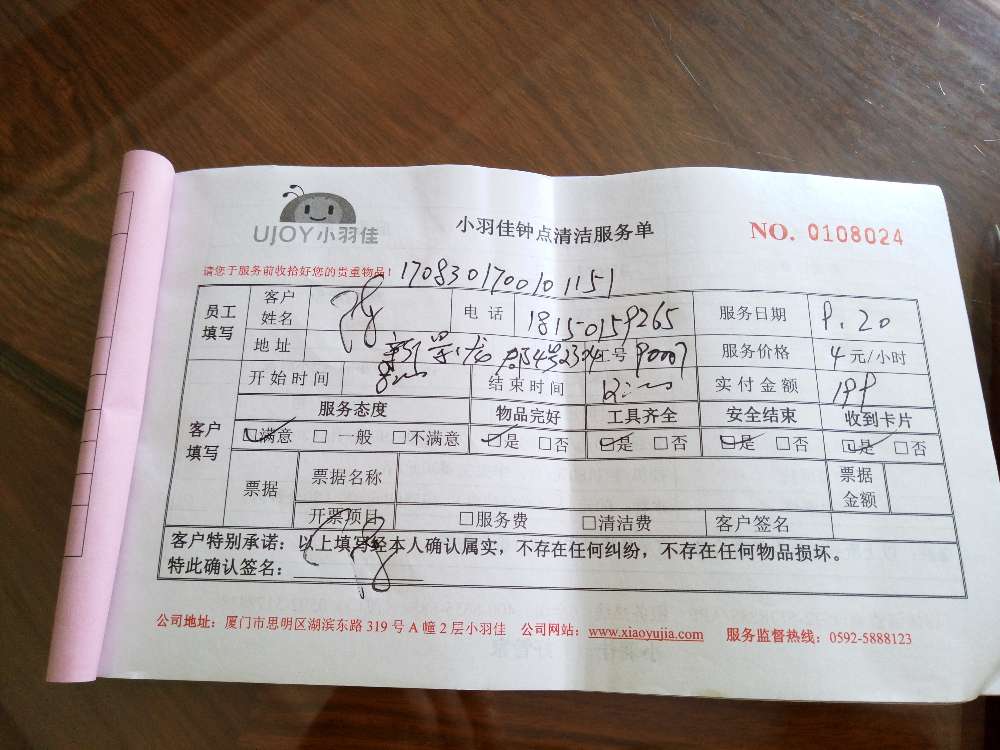 UJOY小羽佳
小羽佳钟点清洁服务单
NO. 0108024
请您于服务前收拾好您的贵重物品!
170830170010 1151
员工填写 客户姓名 电话 18150159265 服务日期 9.20
地址 4号2304 工号 90007 服务价格 4元/小时
开始时间 结束时间 实付金额 199
客户填写 服务态度 物品完好 工具齐全 安全结束 收到卡片
☑满意 □一般 □不满意 ☑是 □否 ☑是 □否 ☑是 □否 ☑是 □否
票据 票据名称 票据金额
开票项目 □服务费 □清洁费 客户签名
客户特别承诺：以上填写经本人确认属实，不存在任何纠纷，不存在任何物品损坏。
特此确认签名：
公司地址：厦门市思明区湖滨东路 319 号 A 幢 2 层小羽佳 公司网站：www.xiaoyujia.com 服务监督热线：0592-5888123